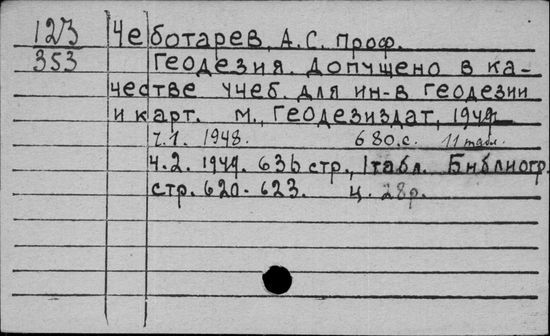 123 Чеботарев, А.С. проф.
353 Геодезия. Допущено в ка-
честве учеб. для ин-в геодезии
и карт. М., Геодезиздат, 1949
ч.1. 1948. 680.с. 11 табл.
Ч.2. 1949. 636 стр., 1 табл. Библиогр.
стр. 620-623. ц. 28р.